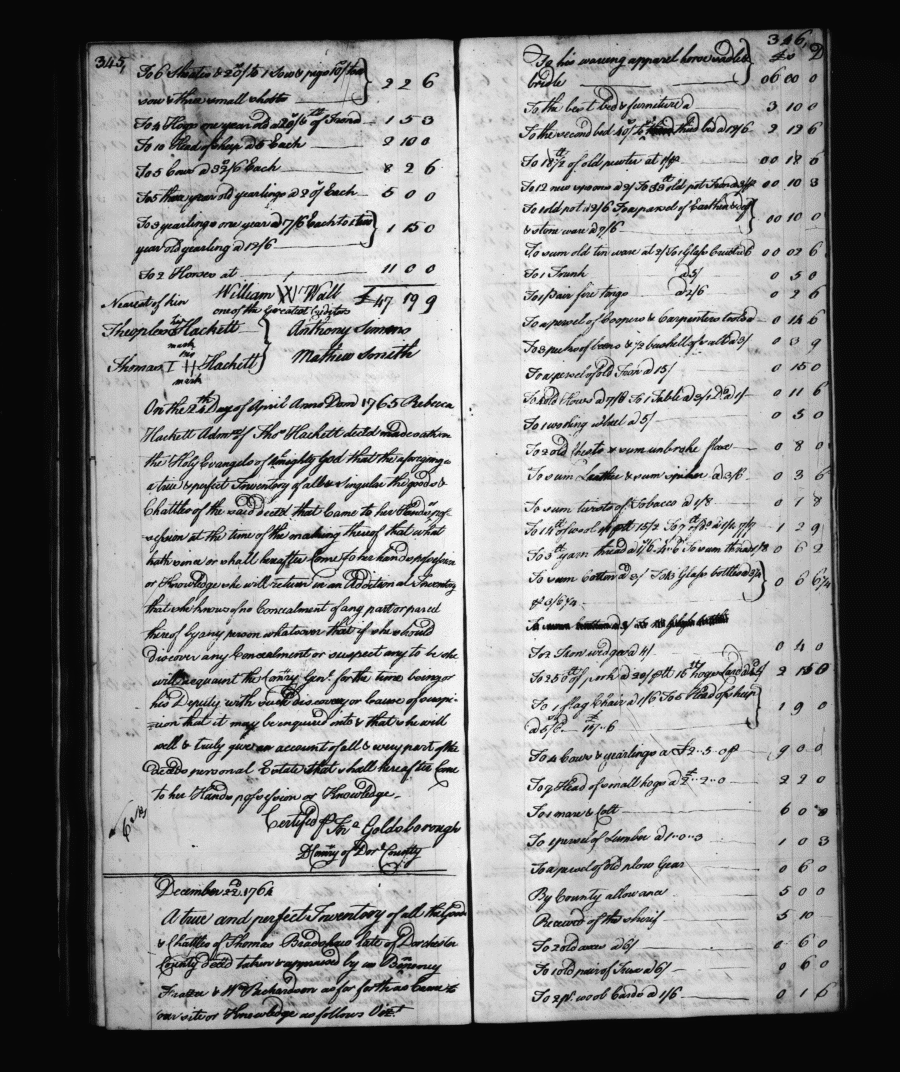 345,
To 6 Shoates a 20/ To 1 Sow & pigs
sow & three small shotts 2 2 6
To 4 Hogs one year old a 20/6 1 5 3
To 10 Head of sheep a 5 Each 2 10 0
To 5 Cows a 32/6 Each 8 2 6
To 5 three year old yearlings a 20/ Each 5 0 0
To 3 yearlings one year a 7/6 Each to 1
year old yearling a 12/6 1 15 0
To 2 Horses at 11 0 0
William W Wall £47 19 9
Nearest of kin
one of the Greatest Creditors
Theoplos Hackett
mark
Anthony Simons
his
Thomas I H Hackett
mark
Mathew Smith
On the 24th Day of April Anno Dom 1765 Rebecca
Hackett Admx of Thos Hackett decd made oath on
the Holy Evangels of Almighty God that the aforegoing is
a true & perfect Inventory of all & singular the goods &
Chattles of the said decd that Came to her Hands pos-
session at the time of the making thereof that what
hath since or shall hereafter Come to her hands possession
or Knowledge she will return in an Additional Inventory
that she knows of no Concealment of any part or parcel
thereof by any person whatsoever that if she should
discover any Concealment or suspect any to be she
will acquaint the Comry Genl. for the time being or
his Deputy with such discovery or Cause of suspi-
cion that it may be enquired into & that she will
well & truly give an account of all & every part of the
Deceds personal Estate that shall hereafter Come
to her Hands possession or Knowledge.
Certified p Jno Goldsborough
D Comry of Dor. County
December 22d 1764
A true and perfect Inventory of all the Goods
& Chattles of Thomas Bradshaw late of Dorchester
County decd taken & appraised by us
Frazier & Wm Richardson as far forth as Came to
our site or Knowledge as follows Vizt
346,
£ s D
To his waring apparel horse sadle
bridle 06 00 0
To the best bed & furniture a 3 10 0
To the second bed 40/ To third bed a 12/6 2 12 6
To 18 1/2 of old pewter at 1/ 00 18 6
To 12 new spoons a 2/ To old pot Iron a 00 10 3
To 1 old pot a 2/6 To a parcel of Earthen
& stone ware a 7/6 00 10 0
To sum old tin ware at 2/ To 1 Glass 00 02 6
To 1 Trunk a 5/ 0 5 0
To 1 pair fire tongs a 2/6 0 2 6
To a parcel of Coopers & Carpenters tools a 0 14 6
To 3 pecks of beans & 1/2 bushell of salt a 3/ 0 3 9
To a parcel of old Iron a 15/ 0 15 0
To 4 old Hows a 7/8 To 1 Table a 3/ 0 11 6
To 1 woling wheel a 5/ 0 5 0
To 2 old Chests & sum unbroke flax 0 8 0
To sum Leather & sum a 3/6 0 3 6
To sum twists of Tobacco a 1/8 0 1 8
To 14 lb of wool 15/2 1 2 9
To 3 lb yarn thread a 0 6 2
To sum Cotton a 3/ To 13 Glass bottles a 3/4
& 3/6 1/4 0 6 6 1/4
To 2 Iron wedges a 4/ 0 4 0
To 250 lb of pork a 20/ 2 15 0
To 1 flag Chair a 1/6 To 5 Head of sheep
a 5/6 1 9 0
To 4 Cows & yearlings a £2..5..0 9 0 0
To 7 Head of small hogs a £2..2..0 2 2 0
To 1 mare & Colt 6 0 0
To 1 parcel of Lumber a 1..0..3 1 0 3
To a parcel of old plow Gear 0 6 0
By County allowance 5 0 0
Received of the sherif 5 10
To 2 old axes a 6/ 0 6 0
To 1 old pair of Iron a 6/ 0 6 0
To 2 pr. wool Cards a 1/6 0 1 6